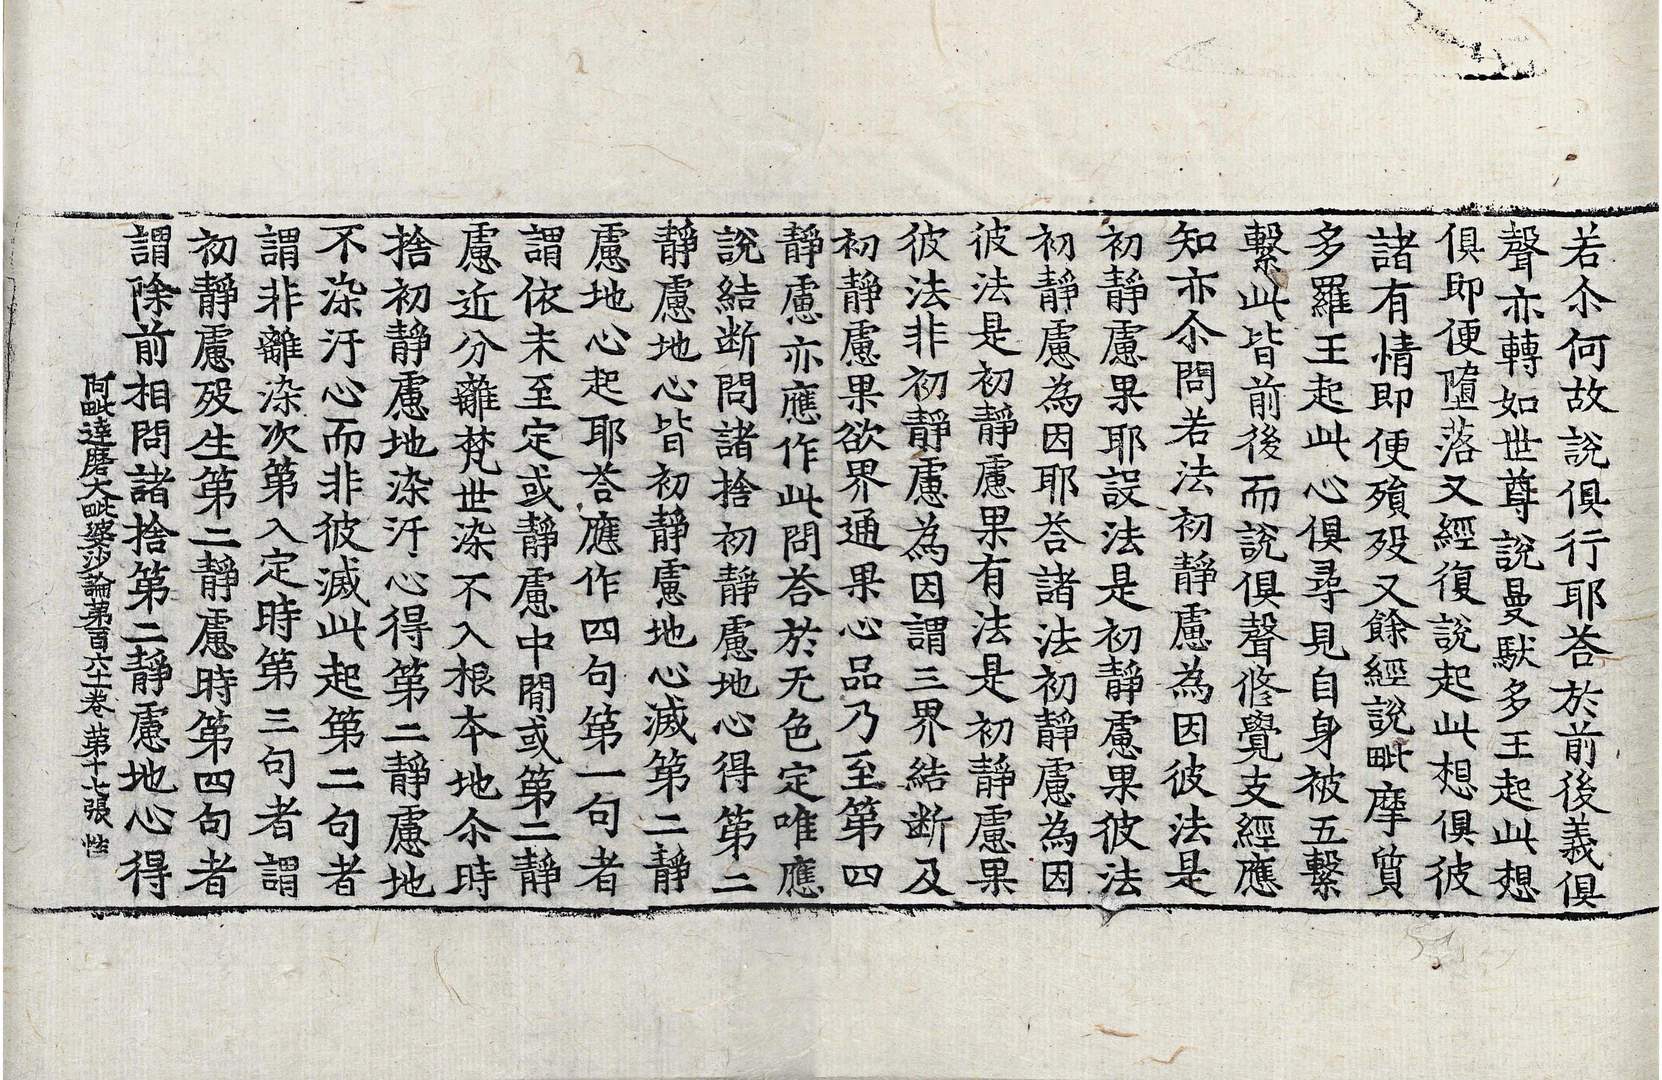 若尒何故說俱行耶荅於前後義俱
聲亦轉如世尊說曼馱多王起此想
俱即便墮落又經復說起此想俱彼
諸有情即便殞歿又餘經說毗摩質
多羅王起此心俱尋見自身被五繫
繫此皆前後而說俱聲修覺支經應
知亦尒問若法初靜慮為因彼法是
初靜慮果耶設法是初靜慮果彼法
初靜慮為因耶荅諸法初靜慮為因
彼法是初靜慮果有法是初靜慮果
彼法非初靜慮為因謂三界結断及
初靜慮果欲界通果心品乃至第四
靜慮亦應作此問荅於无色定唯應
說結断問諸捨初靜慮地心得第二
靜慮地心皆初靜慮地心滅第二靜
慮地心起耶荅應作四句第一句者
謂依未至定或靜慮中閒或第二靜
慮近分離梵世染不入根本地尒時
捨初靜慮地染汙心得第二靜慮地
不染汙心而非彼滅此起第二句者
謂非離染次第入定時第三句者謂
初靜慮歿生第二靜慮時第四句者
謂除前相問諸捨第二靜慮地心得
阿毗達磨大毗婆沙論第百六十卷 第十七張 性